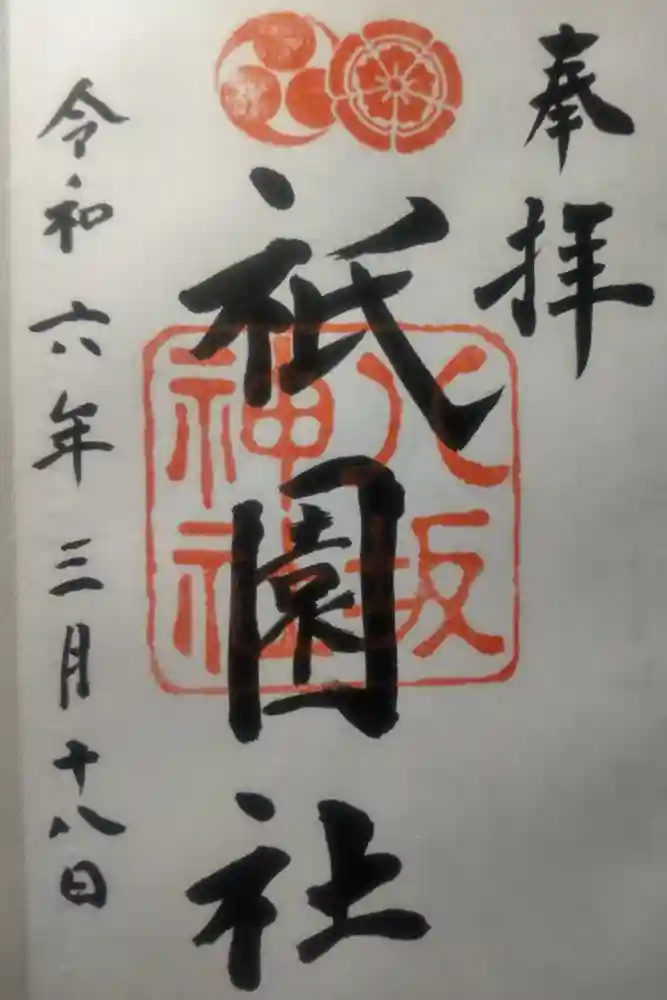 奉拝
祇園社
八坂
神社
令和六年三月十八日